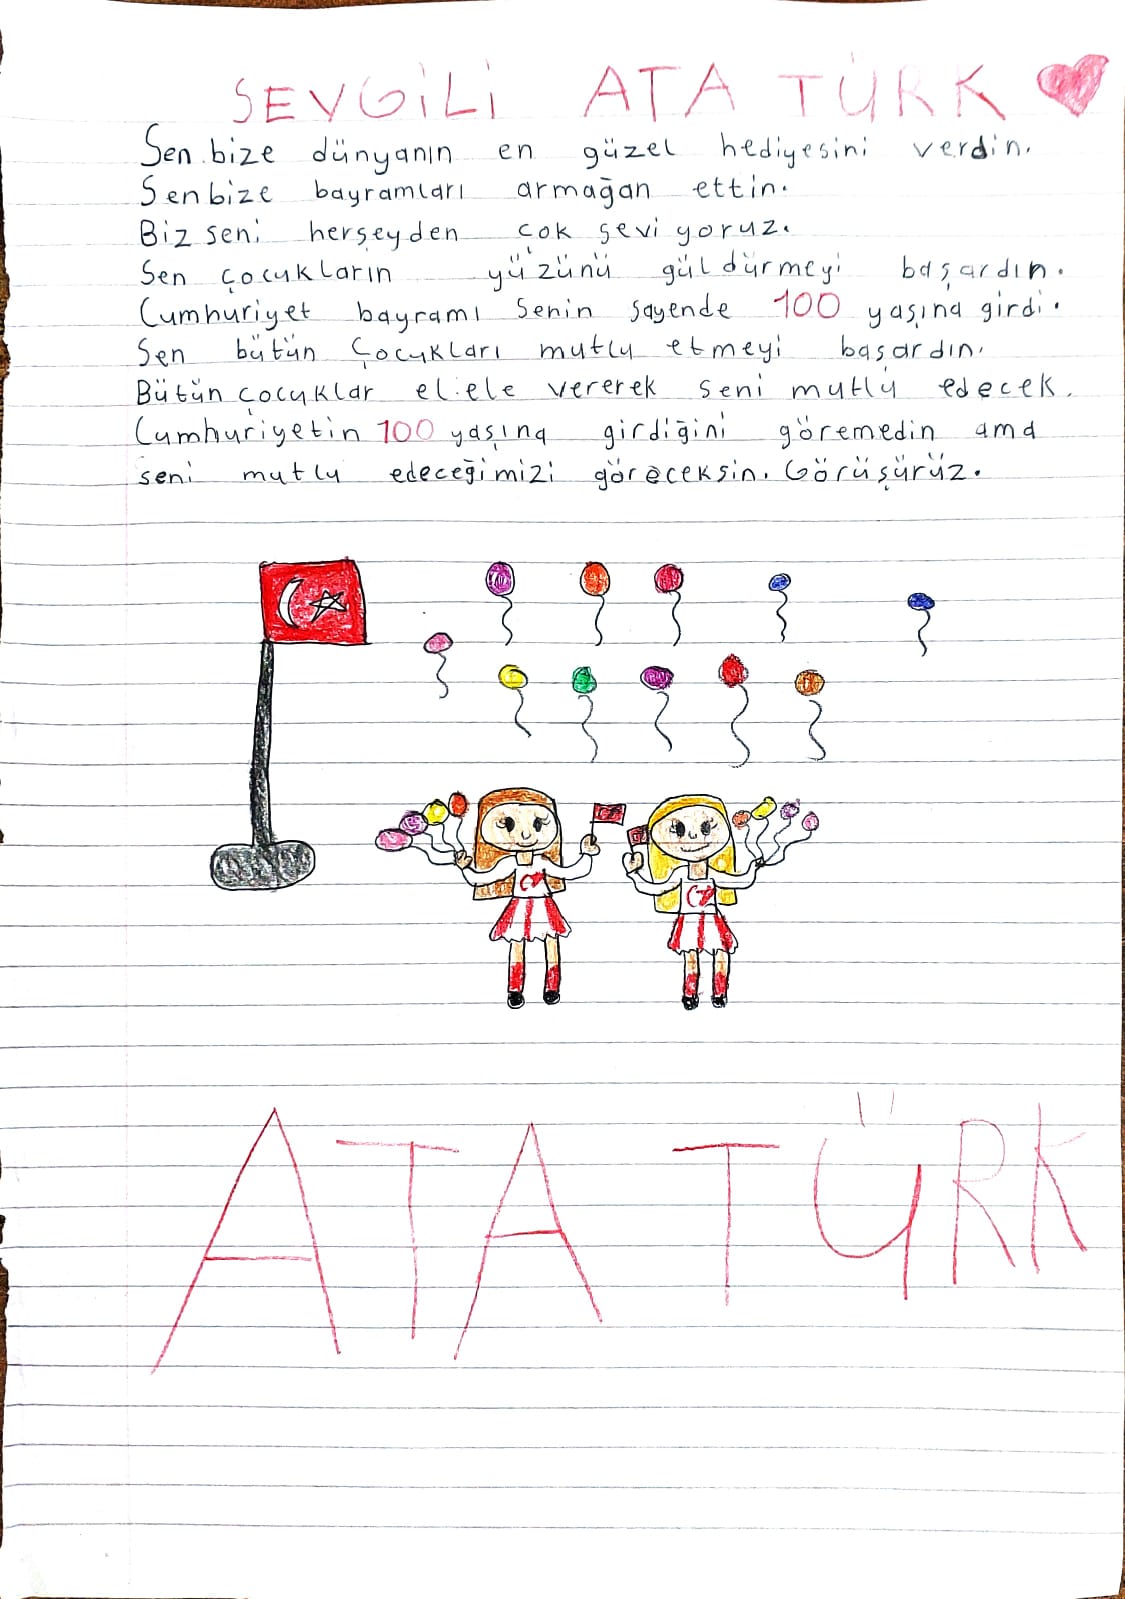 SEVGİLİ ATATÜRK
Sen bize dünyanın en güzel hediyesini verdin.
Sen bize bayramları armağan ettin.
Biz seni herşeyden çok seviyoruz.
Sen çocukların yüzünü güldürmeyi başardın.
Cumhuriyet bayramı senin sayende 100 yaşına girdi.
Sen bütün çocukları mutlu etmeyi başardın.
Bütün çocuklar el ele vererek seni mutlu edecek.
Cumhuriyetin 100 yaşına girdiğini göremedin ama
seni mutlu edeceğimizi göreceksin. Görüşürüz.
ATATÜRK